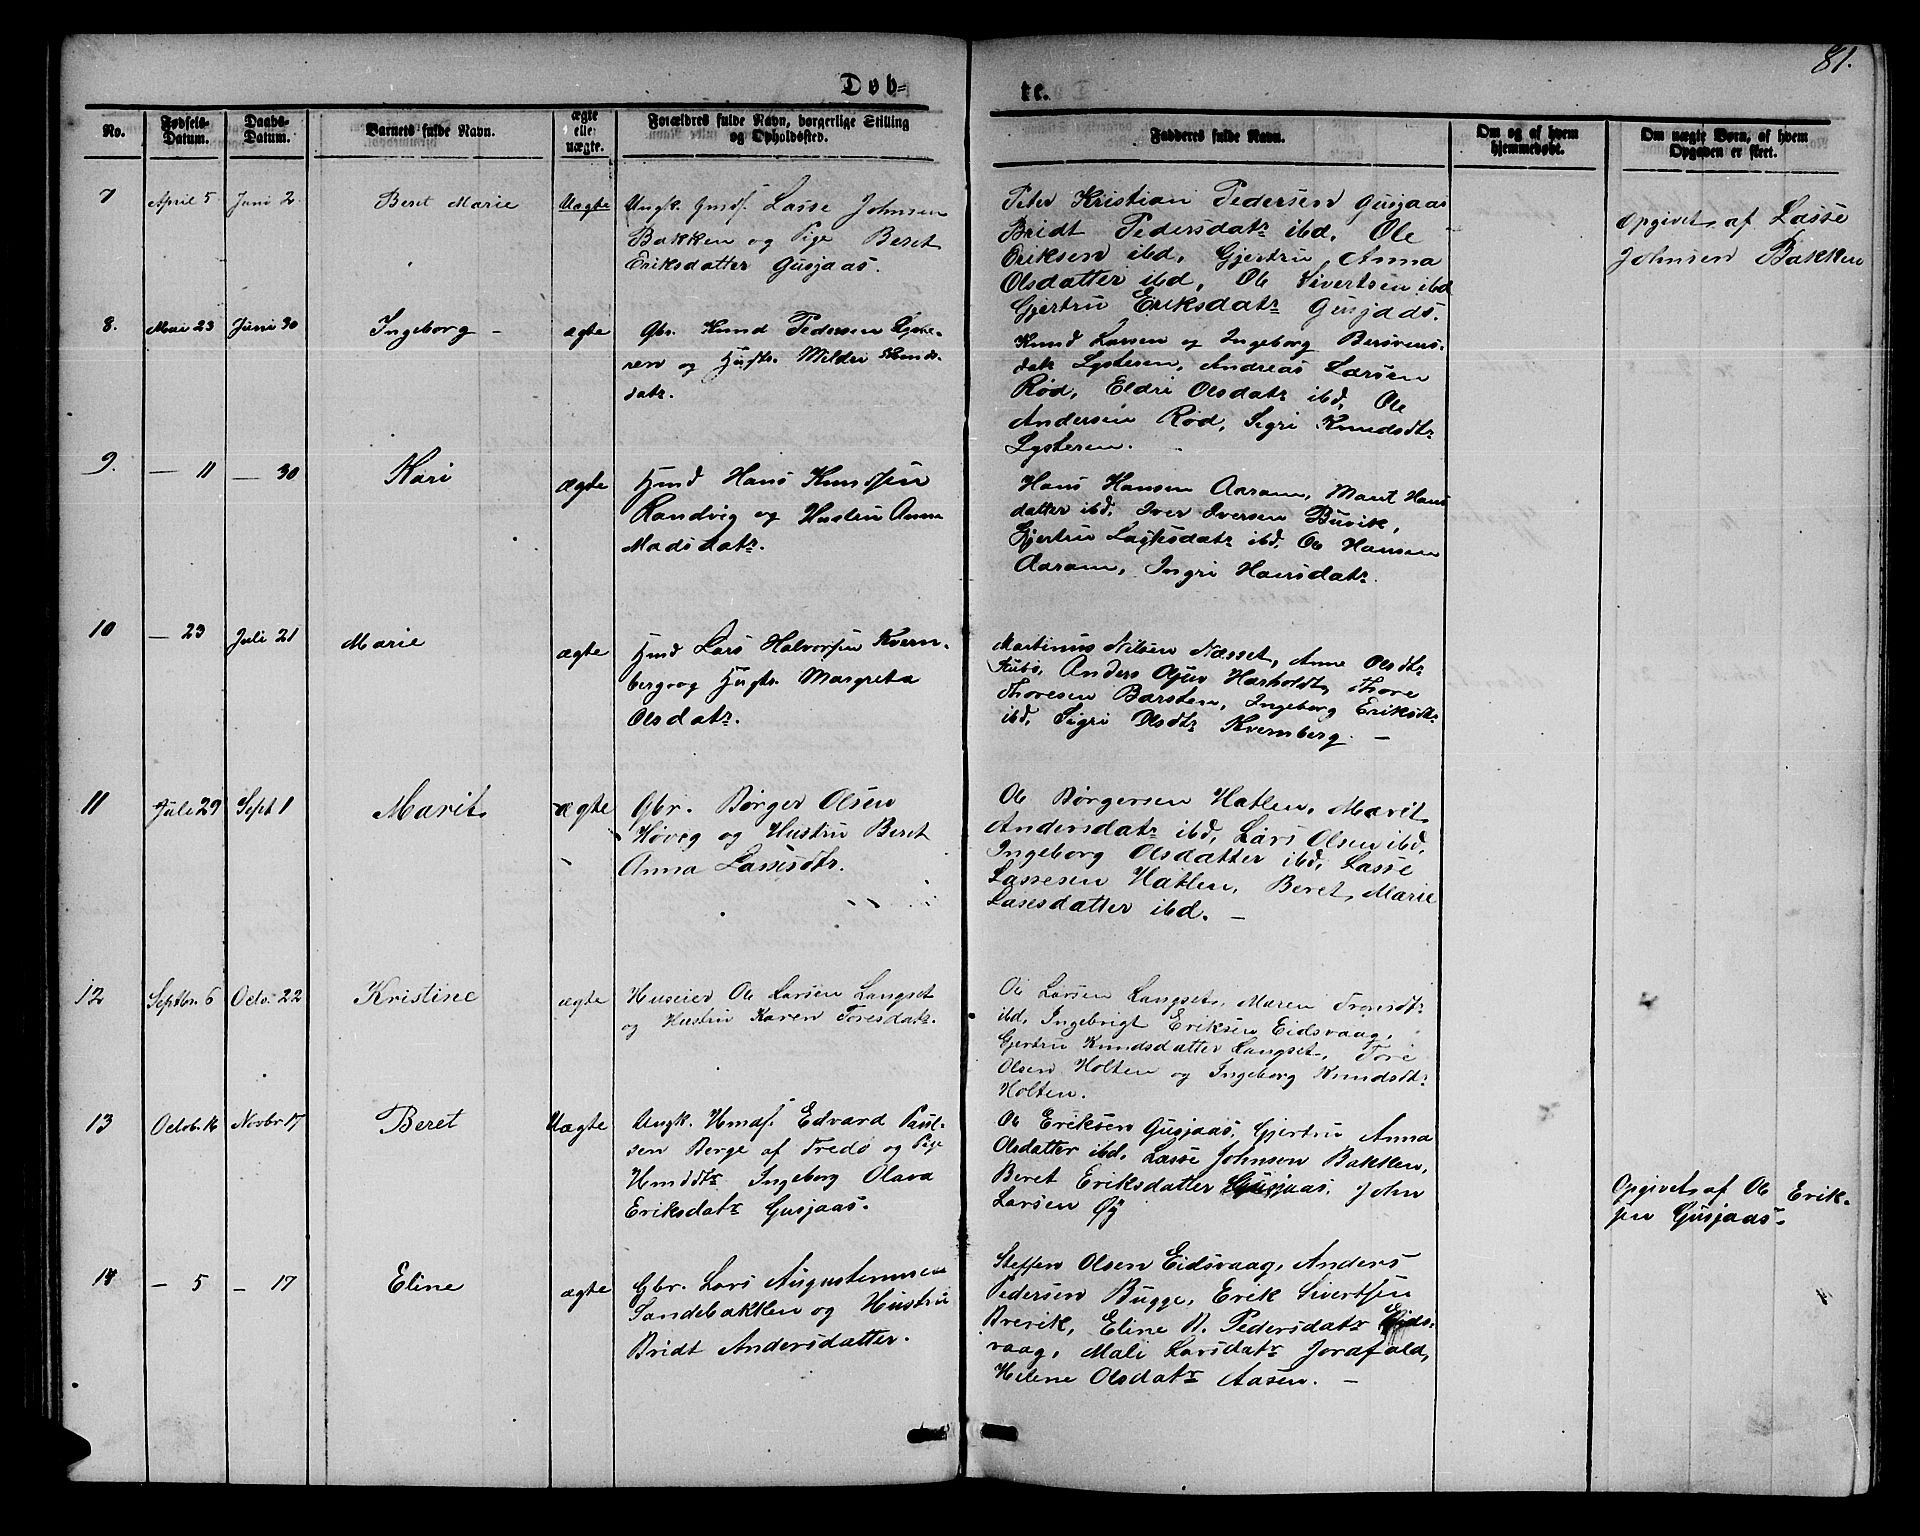 81.
Døb-
te.
No.
Fødsels-
Datum.
Daabs-
Datum.
Barnets fulde Navn.
ægte
eller
uægte.
Forældres fulde Navn, borgerlige Stilling
og Opholdssted.
Fadderes fulde Navn.
Om og af hvem
hjemmedøbt.
Om uægte Børn, af hvem
Opgaven er skeet.
7
April 5
Juni 2
Beret Marie
Uægte
Ungk. Gmdf. Lasse Johnsen
Bakken og Pige Beret
Eriksdatter Gusjaas.
Peter Kristian Pedersen Gusjaas
Bridt Pedersdatr ibd. Ole
Eriksen ibd, Gjertru Anna
Olsdatter ibd, Ole Sivertsen ibd
Gjertru Eriksdatr Gusjaas.
Opgivet af Lasse
Johnsen Bakken
8.
Mai 23
Juni 30
Ingeborg -
ægte
Gbr. Knud Pedersen Lyste-
ren og Hustr. Mildri Knuds-
datr.
Knud Larsen og Ingeborg Bersvens-
datr Lysteren, Andreas Larsen
Rød, Eldri Olsdatr ibd, Ole
Andersen Rød, Sigri Knudsdtr
Lysteren.
9.
— 11
— 30
Kari
ægte
Hmd Hans Knudsen
Randvig og Hustru Anne
Madsdatr.
Hans Hansen Aaram, Marit Hans
datter ibd, Iver Iversen Buvik,
Gjertru ibd, Ole Hansen
Aaram, Ingri Hansdatr.
10
— 23
Juli 21
Marie
ægte
Hmd Lars Halvorsen Kvern-
berg og Hustr. Margreta
Olsdatr.
Martinus Nilsen Næsset, Anne Olsdtr
Kubø, Anders Thore
Thoresen Barsten, Ingeborg Eriksdtr
ibd, Sigri Olsdtr Kvernberg. —
11
Juli 29
Sept 1
Marit
ægte
Gbr. Børger Olsen
Høvig og Hustru Beret
Anna Lassesdtr.
Ole Børgersen Hatlen, Marit
Andersdatr ibd, Lars Olsen ibd,
Ingeborg Olsdatter ibd, Lasse
Lassesen Hatlen, Beret Marie
Lasesdatter ibd. —
12
Septbr. 6
Octo. 22
Kristine
ægte
Huseier Ole Larsen Langset
og Hustru Karen Toresdatr.
Ole Larsen Langset, Maren Tronsdtr
ibd, Ingebrigt Eriksen Eidsvaag,
Gjertru Knudsdatter Langset, Tore
Olsen Holten og Ingeborg Knudsdtr
Holten.
13
Octob. 16
Novbr 17
Beret
Uægte
Ungk. Hmdf. Edvard Paul-
sen Berge af Fredø og Pige
Hmddtr Ingeborg Olava
Eriksdatr Gusjaas.
Ole Eriksen Gusjaas, Gjertru Anna
Olsdatter ibd, Lasse Johnsen Bakken,
Beret Eriksdatter Gusjaas, John
Larsen Øy
Opgivet af Ole Erik-
sen Gusjaas.
14
— 5
— 17
Eline
ægte
Gbr. Lars Augustinusen
Sandebakken og Hustru
Bridt Andersdatter.
Steffen Olsen Eidsvaag, Anders
Pedersen Bugge, Erik Sivertsen
Brevik, Eline B. Pedersdatr Eids-
vaag, Mali Larsdatr Jordfald,
Helene Olsdatr Aasen. —